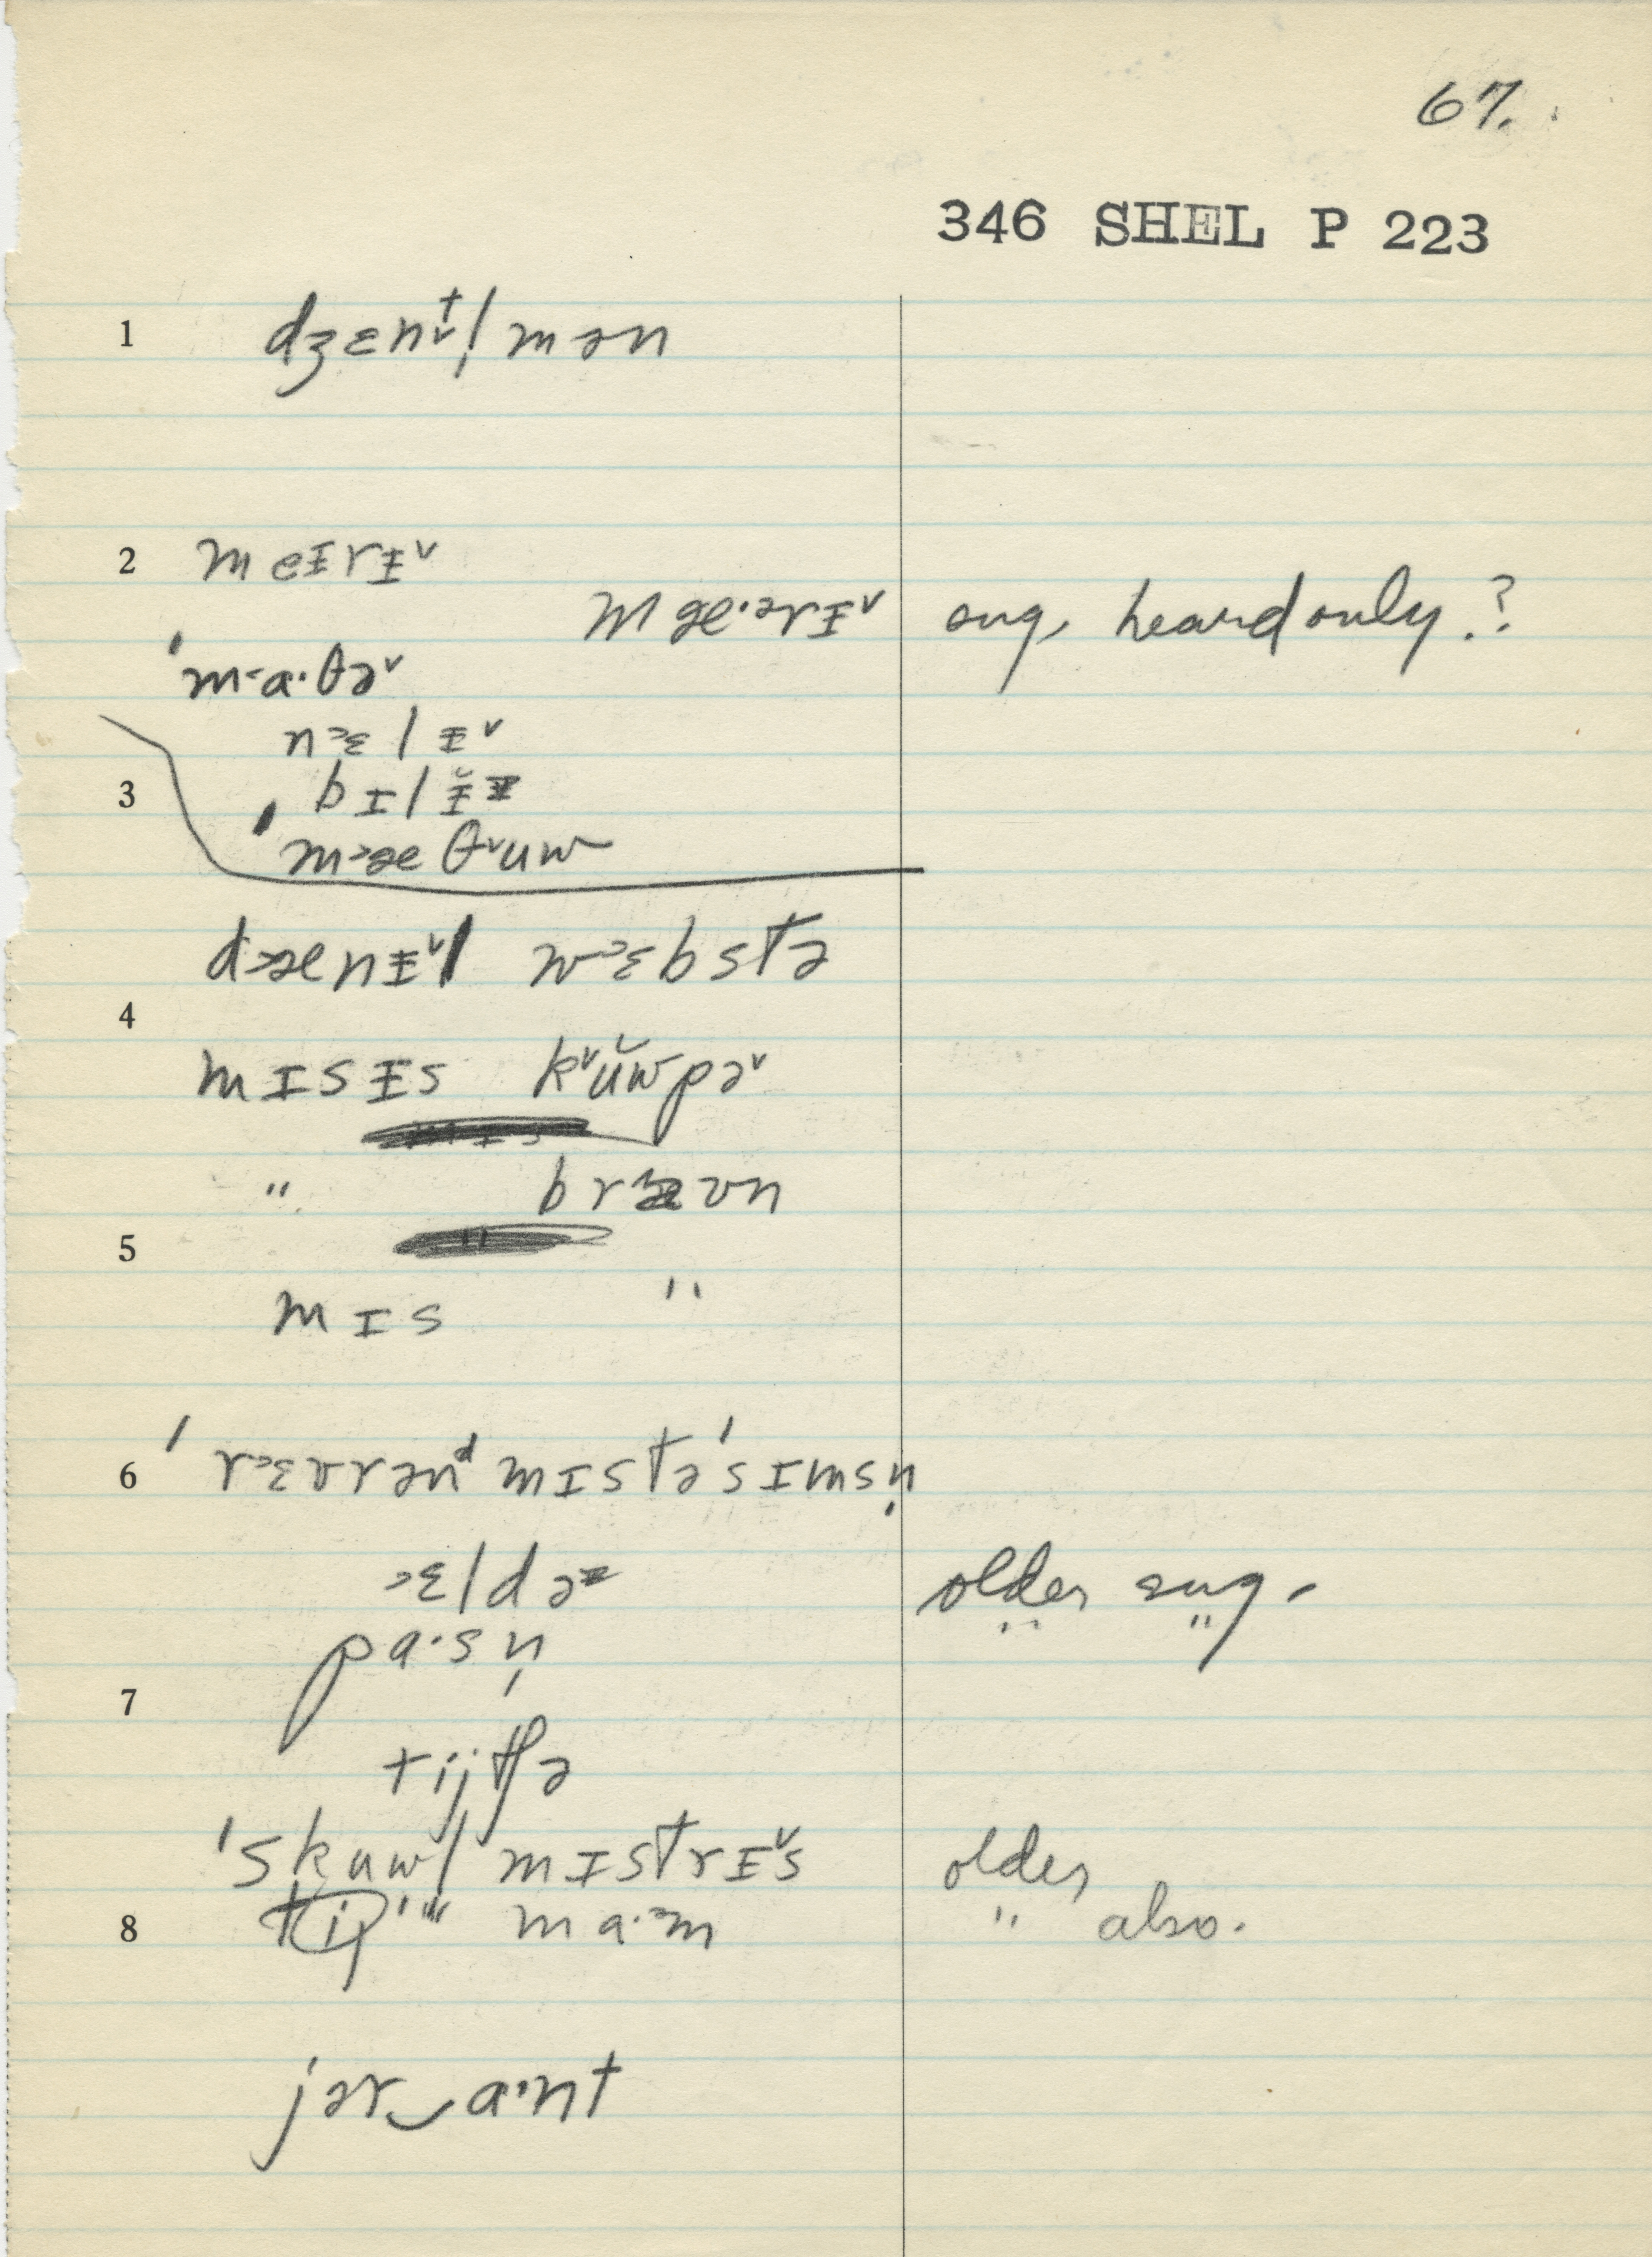 67.
346 SHEL P 223
1 dʒɛnt̬l̩mən
2 meɪrɪ˅
mæ·ərɪ˅ sug. heard only.?
ˈm˂a·θə˅
n˃ɛlɪ˅
3 bɪlɪ̆
ˈm˃æθ˅uw
d˃ænɪ˅l w˃ɛbstə
4
mɪsɪs k˅ŭwpə˅
" bræʊn
5
mɪs "
6 ˈr˃ɛvrənᵈ mɪstəˈsɪmsn̩
˃ɛldə older sug.
pa·sn̩
7
tijtʃə
ˈskuwl mɪstrɪ˅s older
8 " ma·˃m " also.
jər‿a·nt